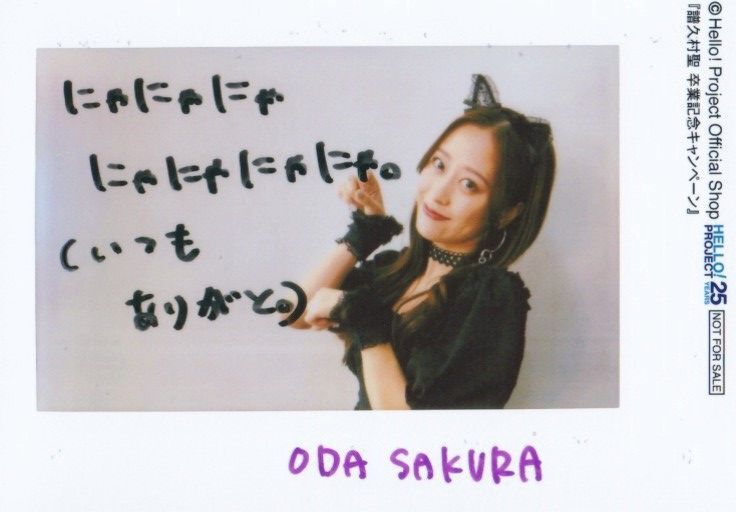 にゃにゃにゃ
にゃにゃにゃにゃ。
(いつも
ありがと。)
ODA SAKURA
© Hello! Project Official Shop
『譜久村聖 卒業記念キャンペーン』
HELLO! PROJECT 25 YEARS
NOT FOR SALE